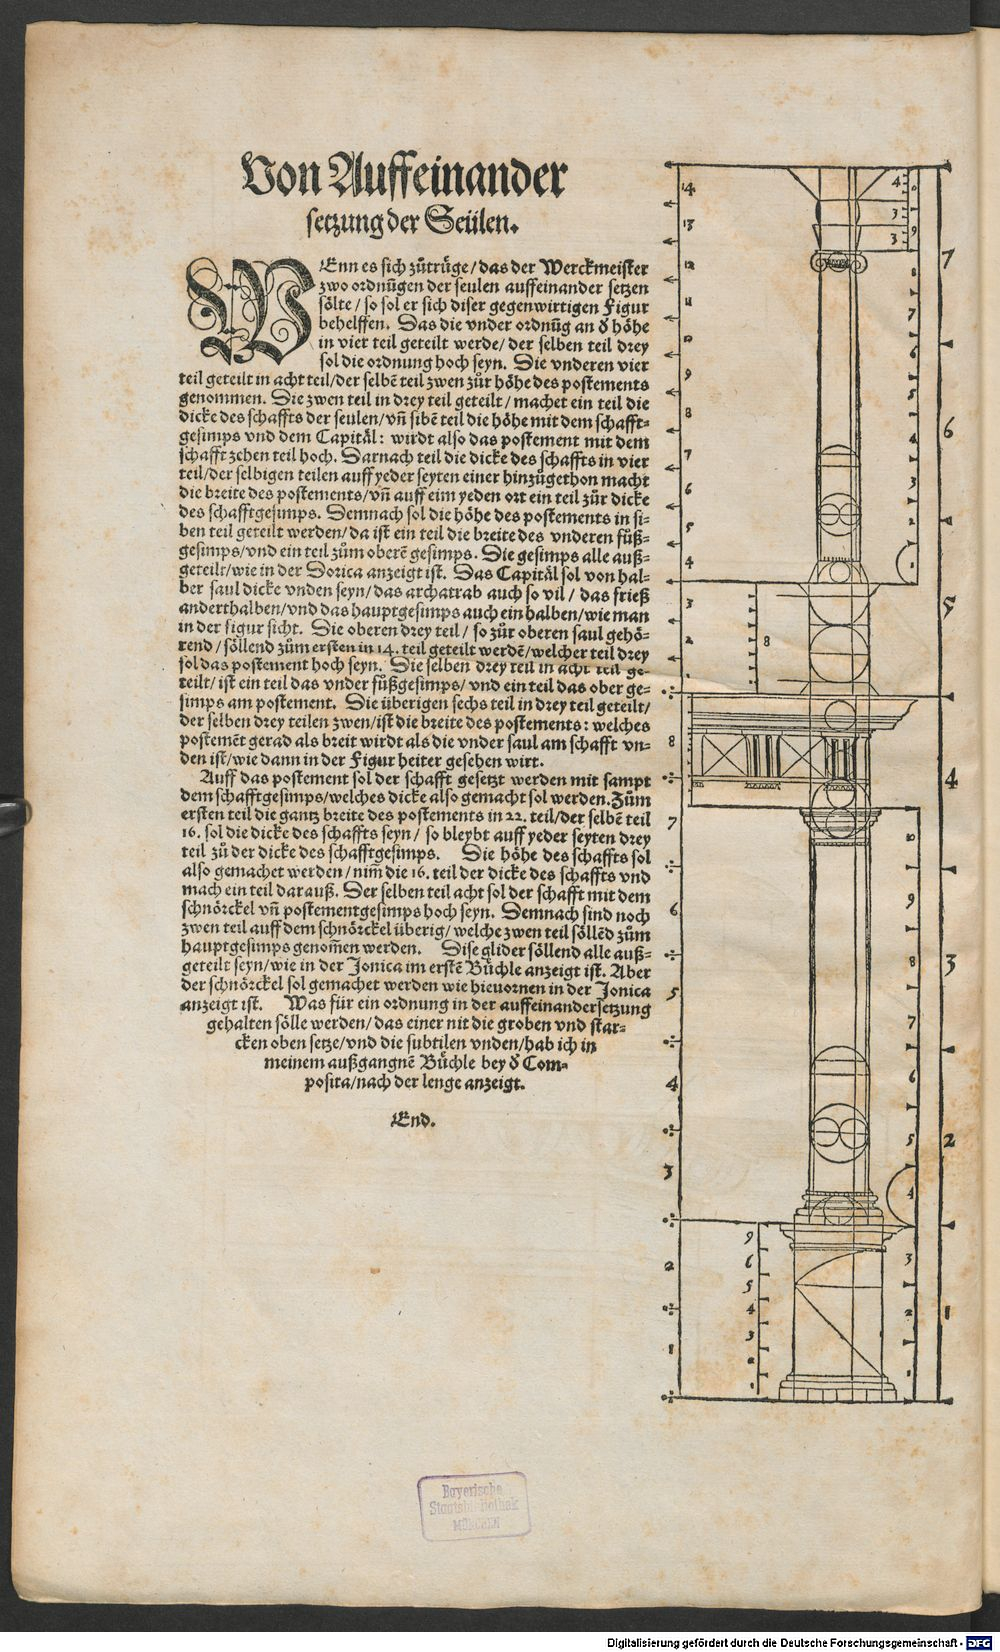 Von Auffeinander
setzung der Seülen.
WEnn es sich zůtrůge/das der Werckmeister
zwo ordnũgen der seulen auffeinander setzen
sőlte/so sol er sich diser gegenwirtigen Figur
behelffen. Das die vnder ordnũg an ð hőhe
in vier teil geteilt werde/der selben teil drey
sol die ordnung hoch seyn. Die vnderen vier
teil geteilt in acht teil/der selbẽ teil zwen zůr hőhe des postements
genommen. Die zwen teil in drey teil geteilt/machet ein teil die
dicke des schaffts der seulen/vñ sibẽ teil die hőhe mit dem schafft-
gesimps vnd dem Capitäl: wirdt also das postement mit dem
schafft zehen teil hoch. Darnach teil die dicke des schaffts in vier
teil/der selbigen teilen auff yeder seyten einer hinzůgethon macht
die breite des postements/vñ auff eim yeden ort ein teil zůr dicke
des schafftgesimps. Demnach sol die hőhe des postements in si-
ben teil geteilt werden/da ist ein teil die breite des vnderen fůß-
gesimps/vnd ein teil zům oberẽ gesimps. Die gesimps alle auß-
geteilt/wie in der Dorica anzeigt ist. Das Capitäl sol von hal-
ber saul dicke vnden seyn/das archatrab auch so vil/das frieß
anderthalben/vnd das hauptgesimps auch ein halben/wie man
in der figur sicht. Die oberen drey teil/so zůr oberen saul gehő-
rend/sőllend zům ersten in 14. teil geteilt werdẽ/welcher teil drey
sol das postement hoch seyn. Die selben drey teil in acht teil ge-
teilt/ist ein teil das vnder fůßgesimps/vnd ein teil das ober ge-
simps am postement. Die überigen sechs teil in drey teil geteilt/
der selben drey teilen zwen/ist die breite des postements: welches
postemẽt gerad als breit wirdt als die vnder saul am schafft vn-
den ist/wie dann in der Figur heiter gesehen wirt.
Auff das postement sol der schafft gesetzt werden mit sampt
dem schafftgesimps/welches dicke also gemacht sol werden. Zům
ersten teil die gantz breite des postements in 22. teil/der selbẽ teil
16. sol die dicke des schaffts seyn/so bleybt auff yeder seyten drey
teil zů der dicke des schafftgesimps. Die hőhe des schaffts sol
also gemachet werden/nim̃ die 16. teil der dicke des schaffts vnd
mach ein teil darauß. Der selben teil acht sol der schafft mit dem
schnőrckel vñ postementgesimps hoch seyn. Demnach sind noch
zwen teil auff dem schnőrckel überig/welche zwen teil sőllẽd zům
hauptgesimps genom̃en werden. Dise glider sőllend alle auß-
geteilt seyn/wie in der Jonica im erstẽ Bůchle anzeigt ist. Aber
der schnőrckel sol gemachet werden wie hieuornen in der Jonica
anzeigt ist. Was für ein ordnung in der auffeinandersetzung
gehalten sőlle werden/das einer nit die groben vnd star-
cken oben setze/vnd die subtilen vnden/hab ich in
meinem außgangnẽ Bůchle bey ð Com-
posita/nach der lenge anzeigt.
End.
14
13
12
11
10
9
8
7
6
5
4
3
2
8
7
6
5
4
3
2
1
4
3
3
9
7
6
5
4
3
2
8
9
8
7
6
5
4
3
2
9
6
5
4
3
2
1
7
6
5
4
3
2
1
Bayerische
Staatsbibliothek
MÜNCHEN
Digitalisierung gefördert durch die Deutsche Forschungsgemeinschaft - DFG